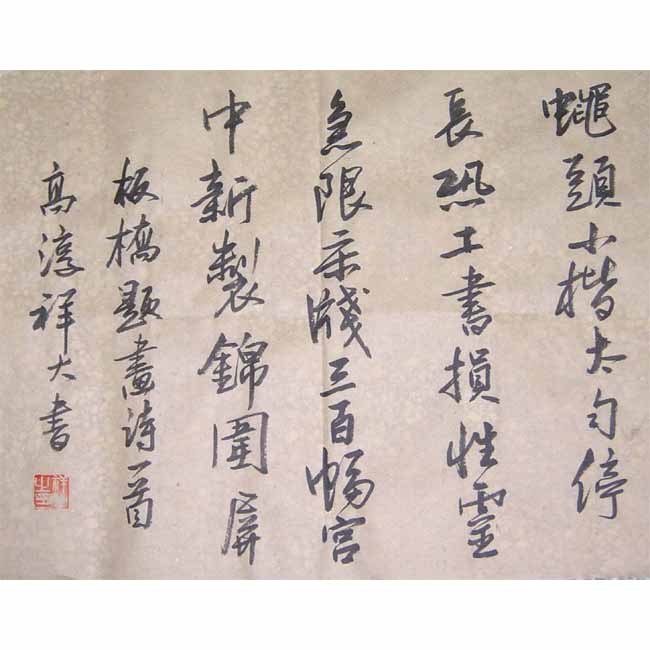 蠅頭小楷太勻停
長恐工書損性靈
急限采牋三百幅宮
中新製錦圍屏
板橋題畫詩一首
高淳祥大書